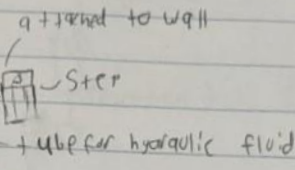 attached to wall
Step
tube for hydraulic fluid